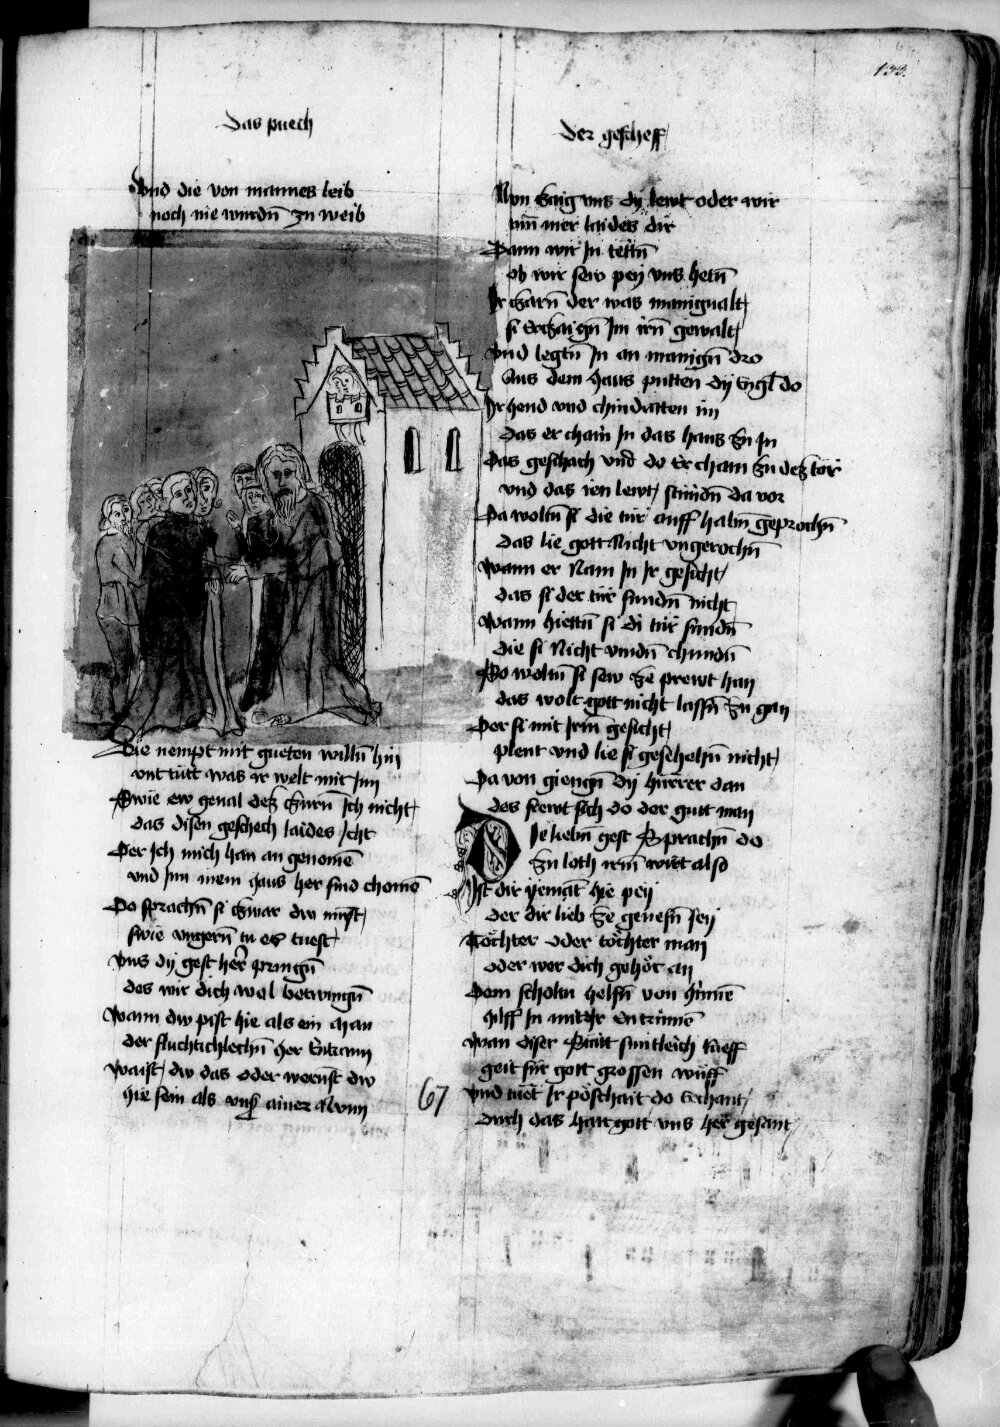 das puech
der gescheff
133.
Vnd die von mannes leib
noch nie wurdn̄ zu weib
Die nempt mit gueten willn̄ hin
vnt tuet was ir welt mit Inn
Swie ew genal dez Zurn̄ Ich nicht
das disen geschech laides Icht
Der Ich mich han an genomē
vnd Inn mein haus her sind chomē
Do sprachn̄ si zwar dw must
swie vngern̄ tu es tuest
vns dy gest her pringn̄
des wir dich wol betwingn̄
Wann dw pist hie als ein man
der fluchtichlechn̄ her entrann
Waist dw das oder wenst dw
hie sein als vnser ainer nun
67
Nun Zaig vns dy lewt oder wir
tun mer laides dir
Dann wir In tettn̄
ob wir sew pey vns hetn̄
Ir Zarn̄ der was manigualt
si erzaigtn̄ Im irn̄ gewalt
vnd legtn̄ In an manign̄ dro
Aus dem haus putten dy engl do
Ir hend vnd chundatten im
das er cham In das haus Zu In
Das geschach vnd do er cham Zu dez tor
vnd das ien lewt stundn̄ da vor
Da woltn̄ si die tur auff habn̄ geprochn̄
das lie gott Nicht vngerochn̄
Wann er Nam In Ir gesicht
das si der tur fundn̄ nicht
Wann hiettn̄ si di tur fundn̄
die si Nicht vindn̄ chundn̄
So woltn̄ si sew Ze prewt han
das wolt gott nicht lassn̄ Zu gan
Der si mit Irm̄ gesicht
plent vnd lie si geseheln̄ nicht
Da von giengn̄ dy hurrer dan
des frewt sich do der gutt man
Die liebn̄ gest Sprachn̄ do
Zu loth irm̄ wirt also
Ist dir yemāt hie pey
der dir lieb Ze genesn̄ sey
Tochter oder tochter man
oder wer dich gehor an
Dem scholtu helfn̄ von hinnē
hilff In mit dir entrinnē
Wan diser Statt suntleich tueff
geit fur gott grossen wueff
vnd tuet Ir poschait do erchant
durch das hatt gott vns her gesant